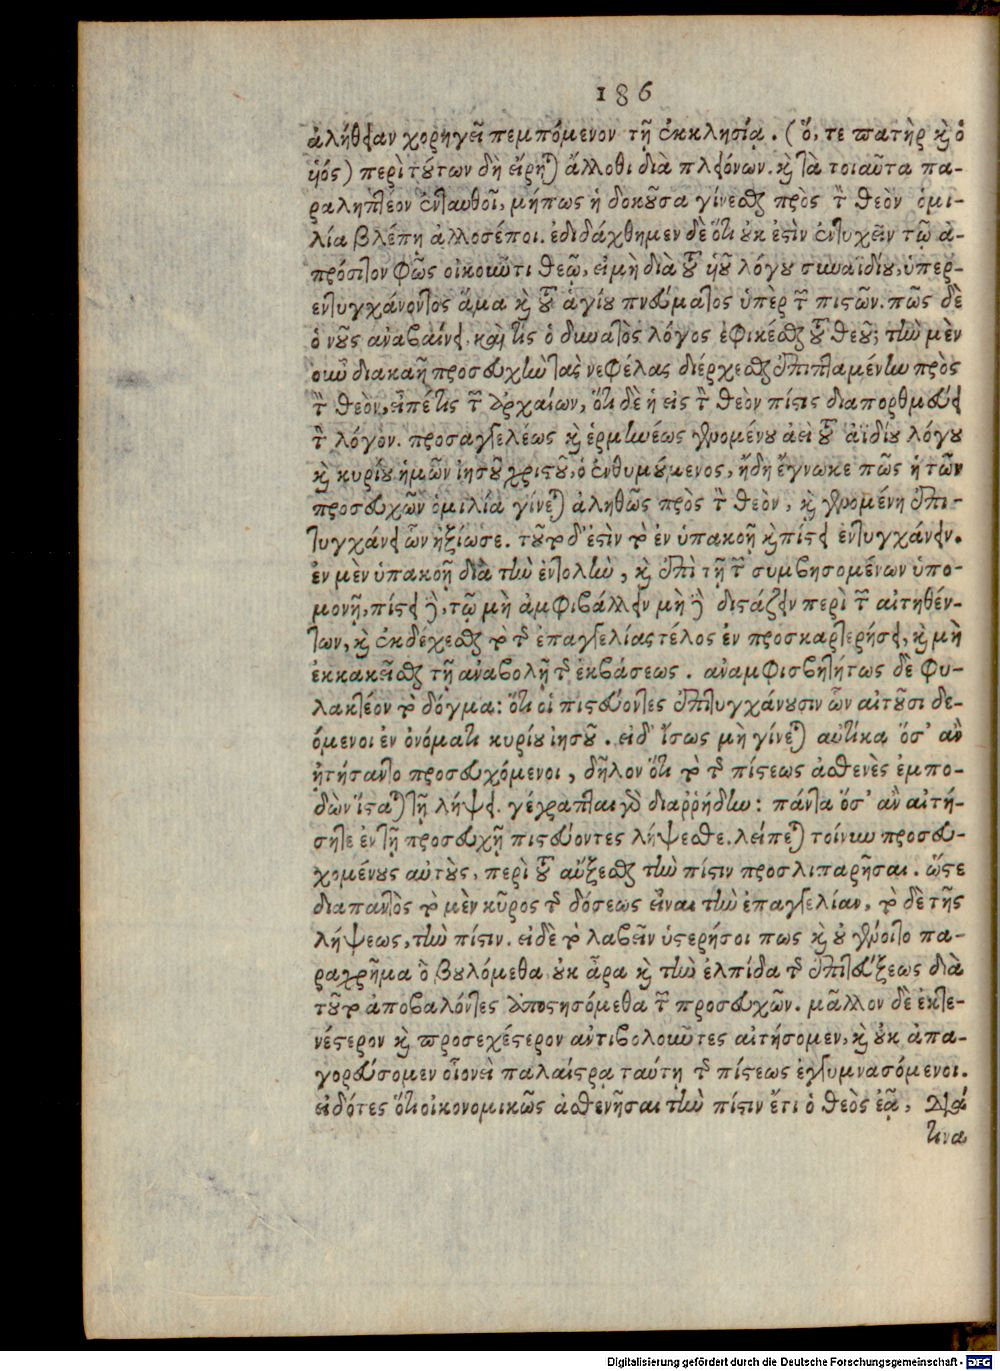 186
ἀλήθειαν χορηγεῖ πεμπόμενον τῇ ἐκκλησίᾳ. (ὅ, τε πατὴρ καὶ ὁ
υἱός) περὶ τούτων δὴ εἴρηται ἄλλοθι διὰ πλειόνων. καὶ τὰ τοιαῦτα πα-
ραληπτέον ἐνταυθοῖ, μήπως ἡ δοκοῦσα γίνεσθαι πρὸς τὸν θεὸν ὁμι-
λία βλέπῃ ἀλλοσέποι. ἐδιδάχθημεν δὲ ὅτι οὐκ ἐστὶν ἐντυχεῖν τῷ ἀ-
πρόσιτον φῶς οἰκοῦντι θεῷ, εἰ μὴ διὰ τοῦ υἱοῦ λόγου συναϊδίου, ὑπερ-
εντυγχάνοντος ἅμα καὶ τοῦ ἁγίου πνεύματος ὑπὲρ τῶν πιστῶν. πῶς δὲ
ὁ νοῦς ἀναβαίνει, καὶ τίς ὁ δυνατὸς λόγος ἐφικέσθαι τοῦ θεοῦ; τὴν μὲν
οὖν διακαῆ προσευχὴν τὰς νεφέλας διέρχεσθαι ἐπιπταμένην πρὸς
τὸν θεὸν, εἶπέ τις τῶν ἀρχαίων, ὅτι δὲ ἡ εἰς τὸν θεὸν πίστις διαπορθμεύει
τὸν λόγον. προσαγγελέως καὶ ἑρμηνέως γενομένου ἀεὶ τοῦ ἀϊδίου λόγου
καὶ κυρίου ἡμῶν ἰησοῦ χριστοῦ, ὁ ἐνθυμούμενος, ἤδη ἔγνωκε πῶς ἡ τῶν
προσευχῶν ὁμιλία γίνεται ἀληθῶς πρὸς τὸν θεὸν, καὶ γενομένη ἐπι-
τυγχάνει ὧν ἠξίωσε. τοῦτο δ' ἐστὶν τὸ ἐν ὑπακοῇ καὶ πίστει ἐντυγχάνειν.
ἐν μὲν ὑπακοῇ διὰ τὴν ἐντολὴν, καὶ ἐπὶ τῇ τῶν συμβησομένων ὑπο-
μονῇ, πίστει δὲ, τῷ μὴ ἀμφιβάλλειν μὴ δὲ διστάζειν περὶ τῶν αἰτηθέν-
των, καὶ ἐκδέχεσθαι τὸ τῆς ἐπαγγελίας τέλος ἐν προσκαρτερήσει, καὶ μὴ
ἐκκακεῖσθαι τῇ ἀναβολῇ τῆς ἐκβάσεως. ἀναμφισβητήτως δὲ φυ-
λακτέον τὸ δόγμα: ὅτι οἱ πιστεύοντες ἐπιτυγχάνουσιν ὧν αἰτοῦσι δε-
όμενοι ἐν ὀνόματι κυρίου ἰησοῦ. εἰ δ' ἴσως μὴ γίνεται αὐτίκα ὅσ' ἂν
ᾐτήσαντο προσευχόμενοι, δῆλον ὅτι τὸ τῆς πίστεως ἀσθενὲς ἐμπο-
δὼν ἵσταται τῇ λήψει. γέγραπται γὰρ διαῤῥήδην: πάντα ὅσ' ἂν αἰτή-
σητε ἐν τῇ προσευχῇ πιστεύοντες λήψεσθε. λείπεται τοίνυν προσευ-
χομένους αὐτοὺς, περὶ τοῦ αὔξεσθαι τὴν πίστιν προσλιπαρῆσαι. ὥστε
διαπαντὸς τὸ μὲν κῦρος τῆς δόσεως εἶναι τὴν ἐπαγγελίαν, τὸ δὲ τῆς
λήψεως, τὴν πίστιν. εἰ δὲ τὸ λαβεῖν ὑστερήσοι πως καὶ οὐ γένοιτο πα-
ραχρῆμα ὃ βουλόμεθα οὐκ ἆρα καὶ τὴν ἐλπίδα τῆς ἐπιτεύξεως διὰ
τοῦτο ἀποβαλόντες ἀποστησόμεθα τῶν προσευχῶν. μᾶλλον δὲ ἐκτε-
νέστερον καὶ προσεχέστερον ἀντιβολοῦντες αἰτήσομεν, καὶ οὐκ ἀπα-
γορεύσομεν οἱονεὶ παλαίστρᾳ ταύτῃ τῆς πίστεως ἐγγυμνασόμενοι.
εἰδότες ὅτι οἰκονομικῶς ἀσθενῆσαι τὴν πίστιν ἔτι ὁ θεὸς ἐᾷ, διά
τινα
Digitalisierung gefördert durch die Deutsche Forschungsgemeinschaft - DFG